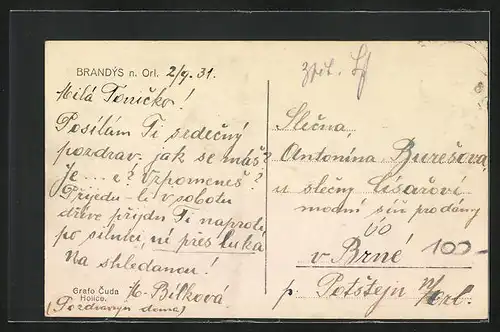 BRANDÝS n. Orl. 2/9. 31.
Milá Toničko!
Posílám Ti srdečný
pozdrav. jak se máš?
je .... e? Vzpomeneš?
Přijedu-li v sobotu
dříve přijdu Ti naproti
po silnici né přes luka
Na shledanou!
M. Bílková
Grafo Čuda
Holice.
(Pozdravuji doma)
zpět.
Slečna
Antonína Burešova
u slečny Císařové
modní síň prodány
v Brné 100-
p. Potštejn n/Orl.